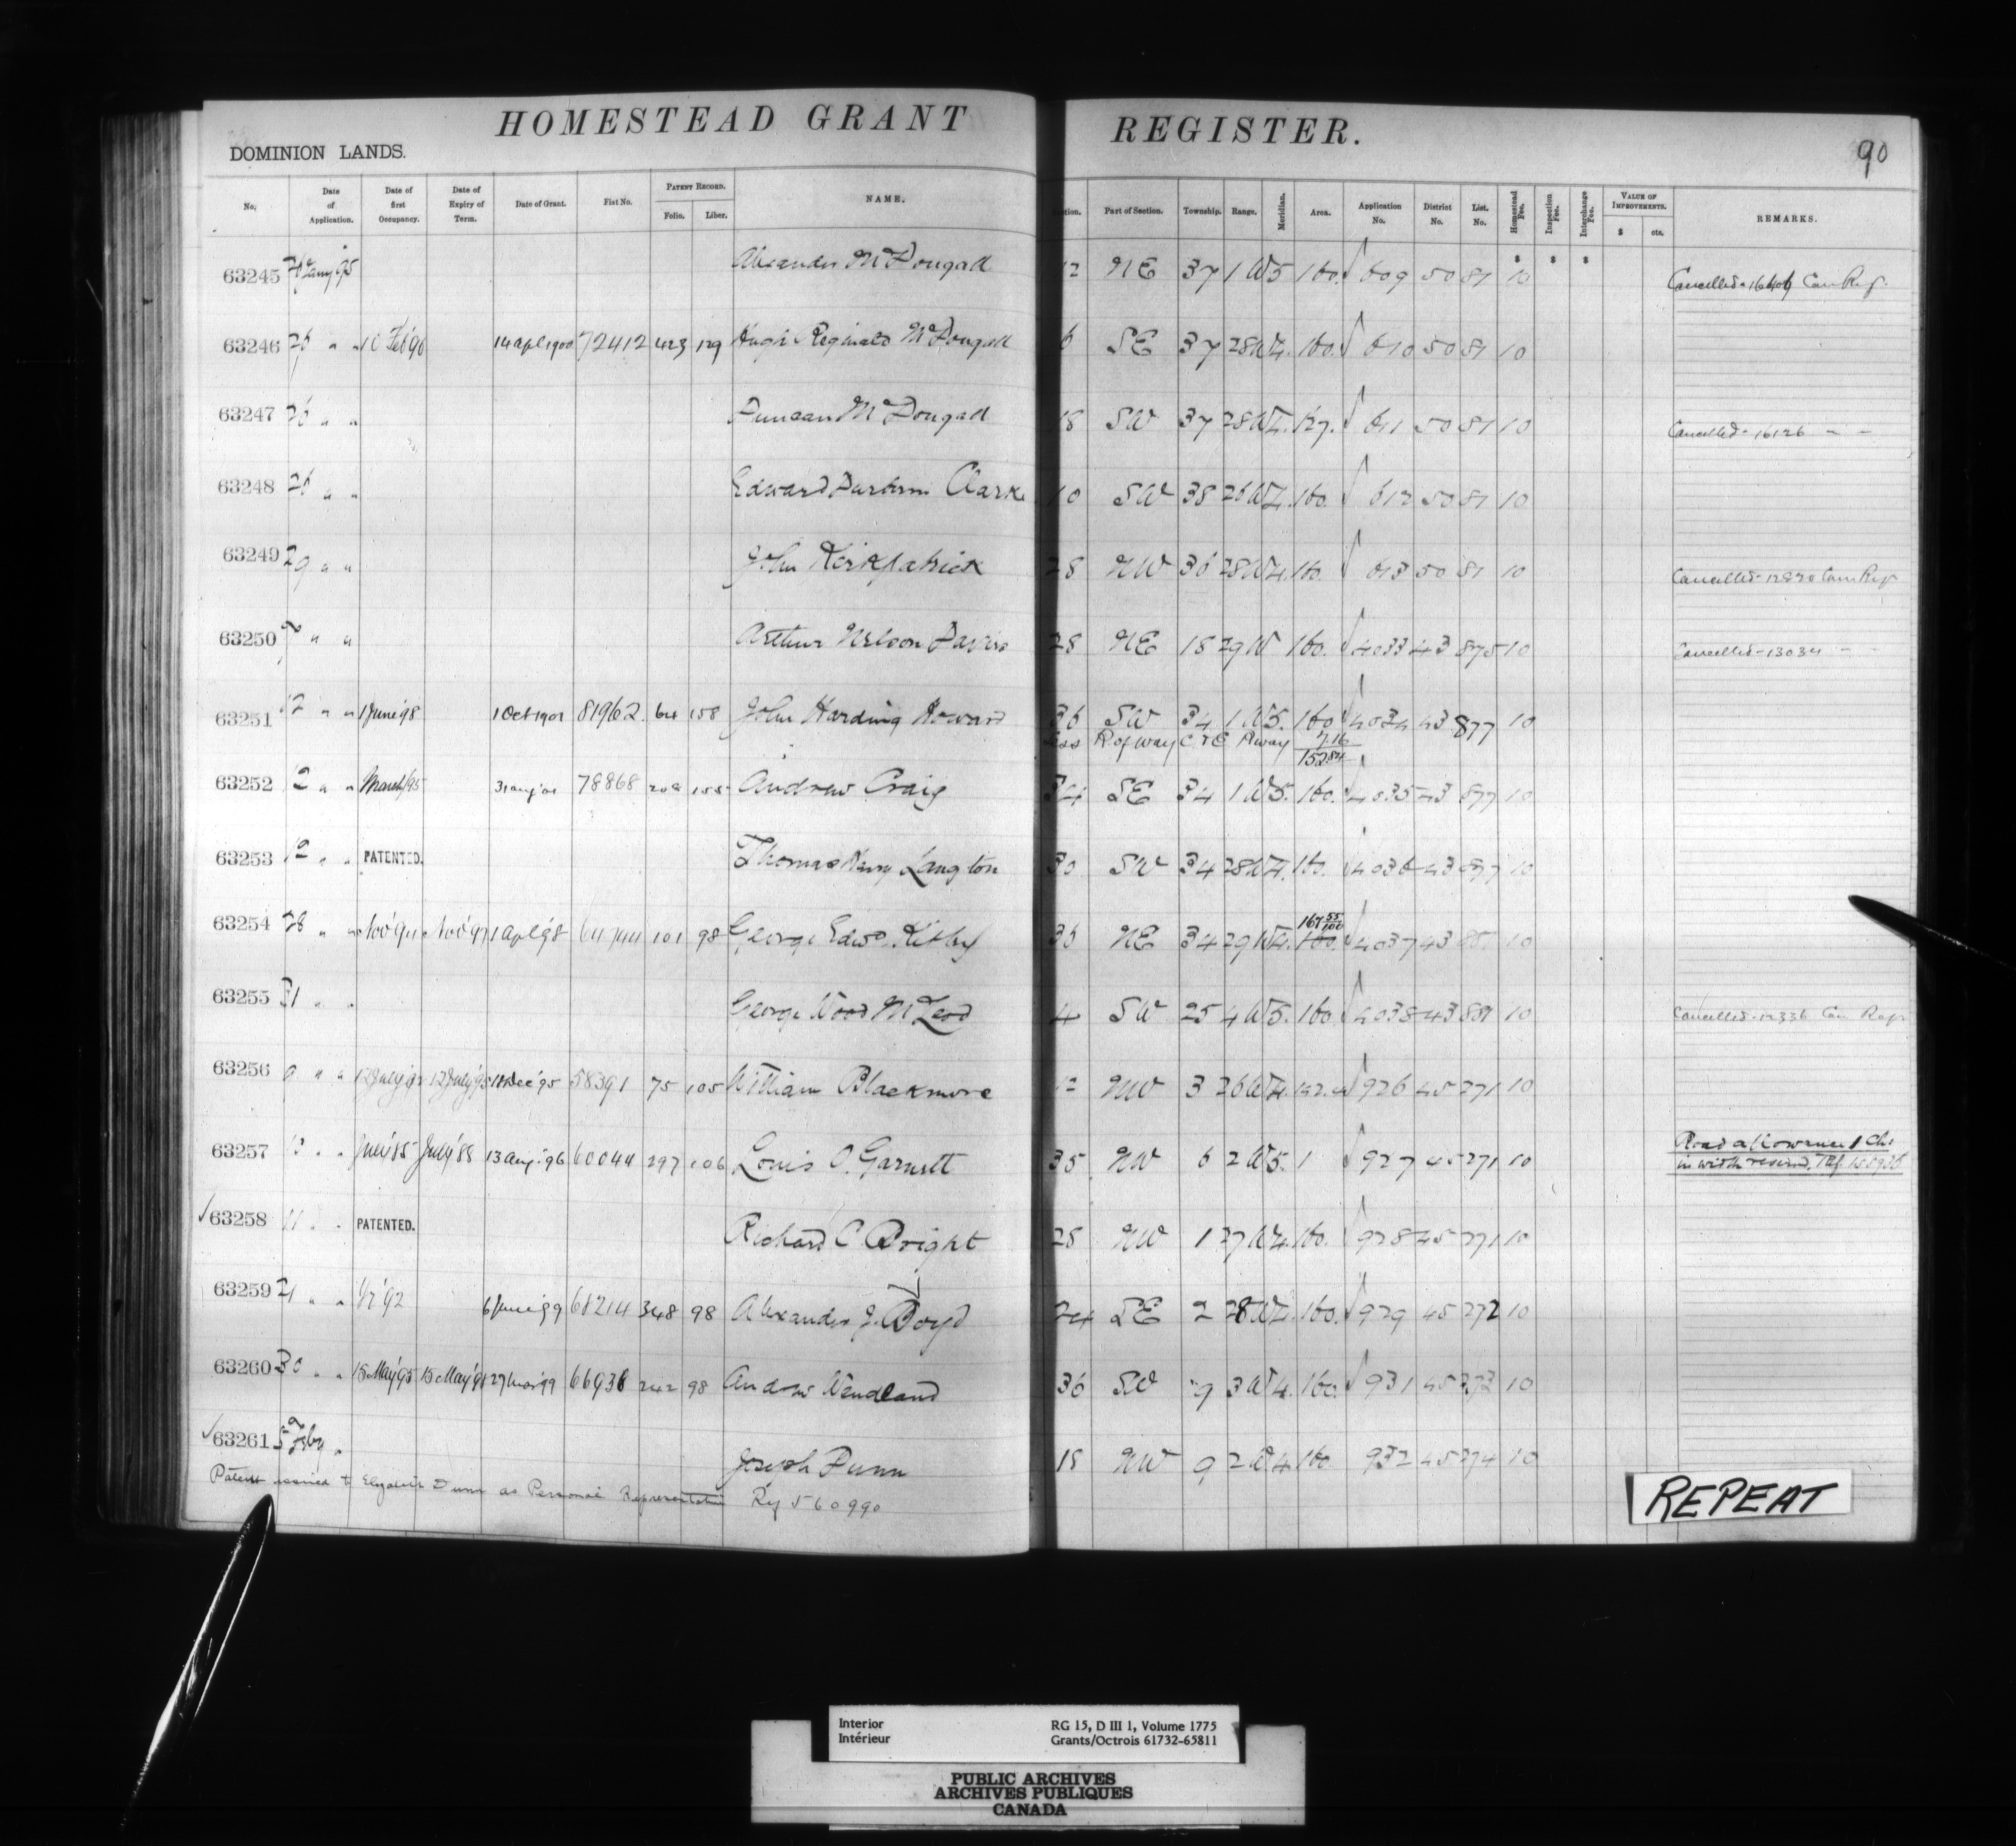 HOMESTEAD GRANT REGISTER.
90
DOMINION LANDS.
No. Date of Application. Date of first Occupancy. Date of Expiry of Term. Date of Grant. Fiat No. PATENT RECORD. Folio. Liber. NAME. Section. Part of Section. Township. Range. Meridian. Area. Application No. District No. List. No. Homestead Fee. Inspection Fee. Interchange Fee. VALUE OF IMPROVEMENTS. $ cts. REMARKS.
$ $ $
63245 '95 Alexander McDougall 12 NE 37 1 W5 160. 609 50 81 10 Cancelled Can Reg.
63246 26 " " 10 Feb'90 14 apl 1900 72412 423 129 Hugh Reginald McDougall 6 SE 37 28 W4. 160. 610 50 81 10
63247 26 " " Duncan McDougall 18 SW 37 28 W4. 127. 611 50 81 10 Cancelled - 16126 " "
63248 26 " " Edward Clarke 10 SW 38 26 W4. 160. 612 50 81 10
63249 29 " " John Kirkpatrick 28 NW 36 28 W4. 160. 613 50 81 10 Cancelled - 12820 Can Reg
63250 9 " " Arthur Nelson 28 NE 18 29 W 160. 4033 43 875 10 Cancelled - 13034 " "
63251 12 " " 1 June '98 1 Oct 1901 81962 64 158 John Harding Howard 36 SW 34 1 W5. 160 4034 43 877 10
less R of way C & E Rway 7.16
152 84
63252 12 " " March/95 31 aug '01 78868 208 155 Andrew Craig 34 SE 34 1 W5. 160. 4035 43 877 10
63253 12 " " PATENTED. Thomas Harry Langton 30 SW 34 28 W4. 160. 4036 43 877 10
167 55/100
63254 28 " " Nov '94 Nov '97 1 apl '98 64744 101 98 George Edwd. Kirby 36 NE 34 29 W4. 160. 4037 43 10
63255 31 " " George Wood McLeod 4 SW 25 4 W5. 160 4038 43 881 10 Cancelled - 12336 Can Reg
63256 9 " " 12 July '92 12 July '95 18 Dec '95 58391 75 105 William Blackmore 12 NW 3 26 W4. 926 45 271 10
63257 13 " " July '85 July '88 13 aug. '96 60044 297 106 Louis O. Garnett 35 NW 6 2 W5. 1 927 45 271 10 Road allowance 1 Ch.
in width reserved.
63258 11 " " PATENTED. Richard C Bright 28 NW 1 27 W4. 160. 928 45 271 10
63259 21 " " '92 6 June '99 68214 348 98 Alexander J. Boyd 24 SE 2 28 W4. 160. 929 45 272 10
63260 30 " " 15 May '95 15 May '98 27 Mar '99 66936 242 98 Andrew Wendland 36 SW 9 3 W4. 160. 931 45 273 10
63261 5 Feby " Joseph Dunn 18 NW 9 2 W4 160 932 45 274 10
Patent issued to Elizabeth Dunn as Personal Representative Ref 560990
REPEAT
Interior RG 15, D III 1, Volume 1775
Intérieur Grants/Octrois 61732-65811
PUBLIC ARCHIVES
ARCHIVES PUBLIQUES
CANADA